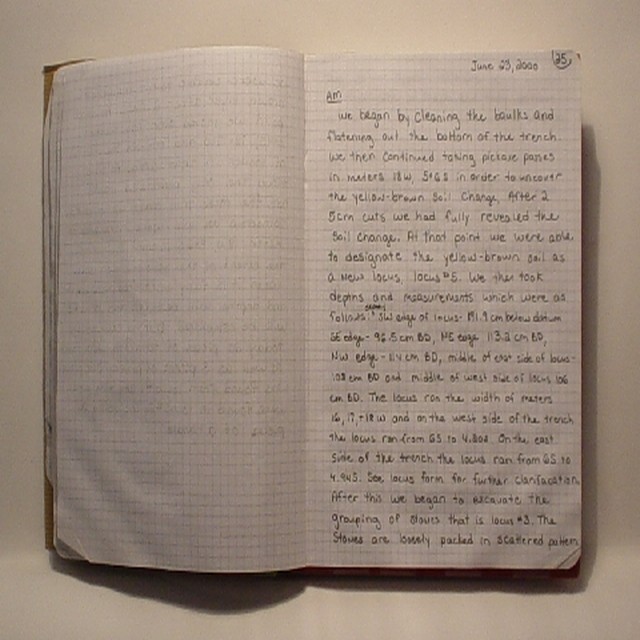 June 23, 2000 25
AM
We began by cleaning the baulks and
flatening out the bottom of the trench.
We then continued taking pickaxe passes
in meters 18W, 5+6S in order to uncover
the yellow-brown soil change. After 2
5cm cuts we had fully revealed the
soil change. At that point we were able
to designate the yellow-brown soil as
a new locus, locus #5. We then took
depths and measurements which were as
follows: SW edge of locus- 191.9 cm below datum
SE edge- 96.5 cm BD, NE edge 113.2 cm BD,
NW edge- 114 cm BD, middle of east side of locus-
108 cm BD and middle of west side of locus 106
cm BD. The locus ran the width of meters
16, 17, +18W and on the west side of the trench
the locus ran from 6S to 4.80S. On the east
side of the trench the locus ran from 6S to
4.94S. See locus form for further clarification.
After this we began to excavate the
grouping of stones that is locus #3. The
stones are loosely packed in scattered pattern